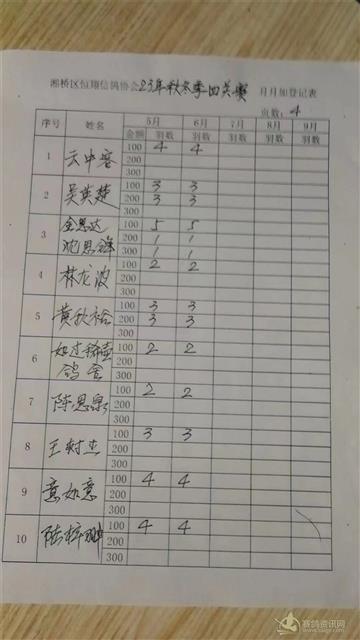 湘桥区恒翔信鸽协会23年秋冬季四关赛 月月加登记表
页数:4
序号 姓名 5月 6月 7月 8月 9月
金额 羽数 羽数 羽数 羽数 羽数
1 云中客 100 4 4
200
300
2 吴英楚 100 3 3
200 3 3
300
3 金思达 100 5 5
200 1 1
300 1 1
4 林龙波 100 2 2
200
300
5 黄秋裕 100 3 3
200 3 3
300
6 鸽舍 100 2 2
200
300
7 陈思泉 100 2 2
200
300
8 王树杰 100 3 3
200
300
9 意如意 100 4 4
200
300
10 陆梓 100 4 4
200
300
赛鸽资讯网
www.saige.com